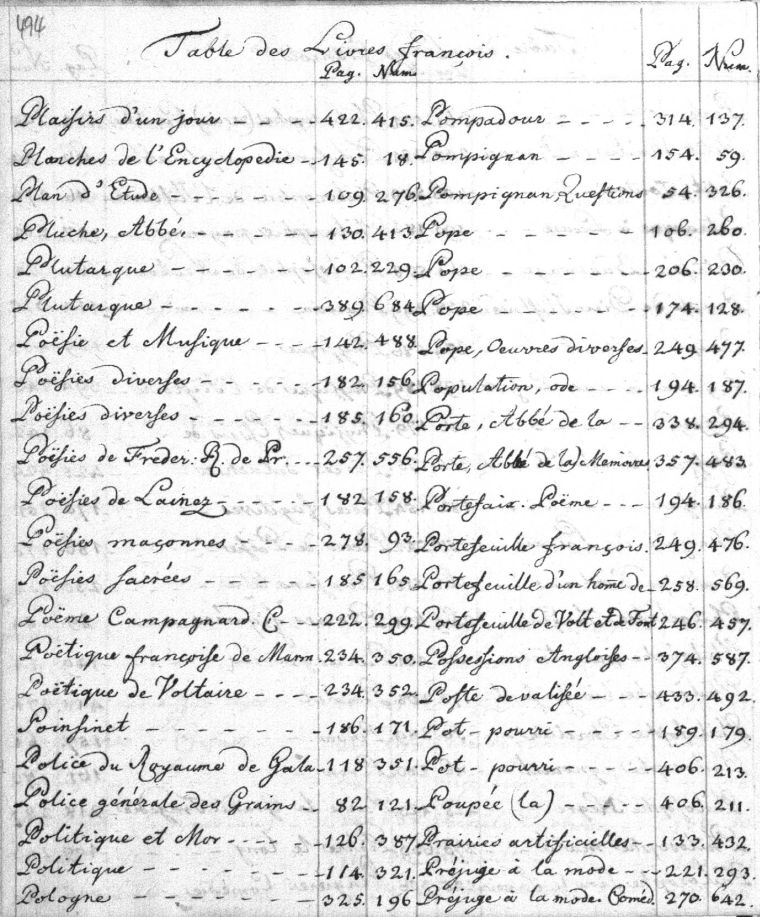 494
Table des Livres françois.
Pag. Num. Pag. Num.
Plaisirs d'un jour - - - - 422. 415.
Planches de l'Encyclopedie - 145. 18.
Plan d'Etude - - - - - - 109. 276.
Pluche, Abbé. - - - - - 130. 413
Plutarque - - - - - - 102. 229.
Plutarque - - - - - - 389. 684.
Poësie et Musique - - - - 142. 488.
Poësies diverses - - - - - 182. 156.
Poësies diverses - - - - - - 185. 160.
Poësies de Freder. R. de Pr. - - - 257. 556.
Poësies de Lainez - - - - - 182. 158.
Poësies maçonnes - - - - - 278. 93.
Poësies sacrées - - - - - 185. 165.
Poëme Campagnard. C - - - 222. 299.
Poëtique françoise de Marm. 234. 350.
Poëtique de Voltaire - - - - 234. 352.
Poinsinet - - - - - - - 186. 171.
Police du Royaume de Gala - 118. 351.
Police générale des Grains - - 82. 121.
Politique et Mor - - - - - 126. 387
Politique - - - - - - - 114. 321.
Pologne - - - - - - - 325. 196
Pompadour - - - - - 314. 137.
Pompignan - - - - - 154. 59.
Pompignan, Questions 54. 326.
Pope - - - - - - 106. 260.
Pope - - - - - - 206. 230.
Pope - - - - - - 174. 128.
Pope, Oeuvres diverses. 249. 477.
Population, ode - - - - 194. 187.
Porte, Abbé de la - - 338. 294.
Porte, Abbé de la) Memoires 357. 483.
Portefaix. Poëme - - - 194. 186.
Portefeuille françois. 249. 476.
Portefeuille d'un home de - 258. 569.
Portefeuille de Volt et de Font 246. 457.
Possessions Angloises - - 374. 587.
Poste devalisée - - - 433. 492.
Pot - pourri - - - - - 189. 179.
Pot - pourri - - - - - 406. 213.
Poupée (la) - - - - - 406. 211.
Prairies artificielles - - 133. 432.
Préjugé à la mode - - - 221. 293.
Préjugé à la mode. Coméd. 270. 642.